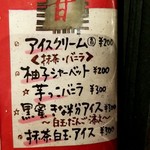 アイスクリーム 高 ¥200
<抹茶・バニラ>
柚子シャーベット ¥200
☆ 芋っこバニラ ¥300
☆ 黒蜜きな粉アイス ¥300
〜白玉だんご添え〜
☆ 抹茶白玉アイス ¥300